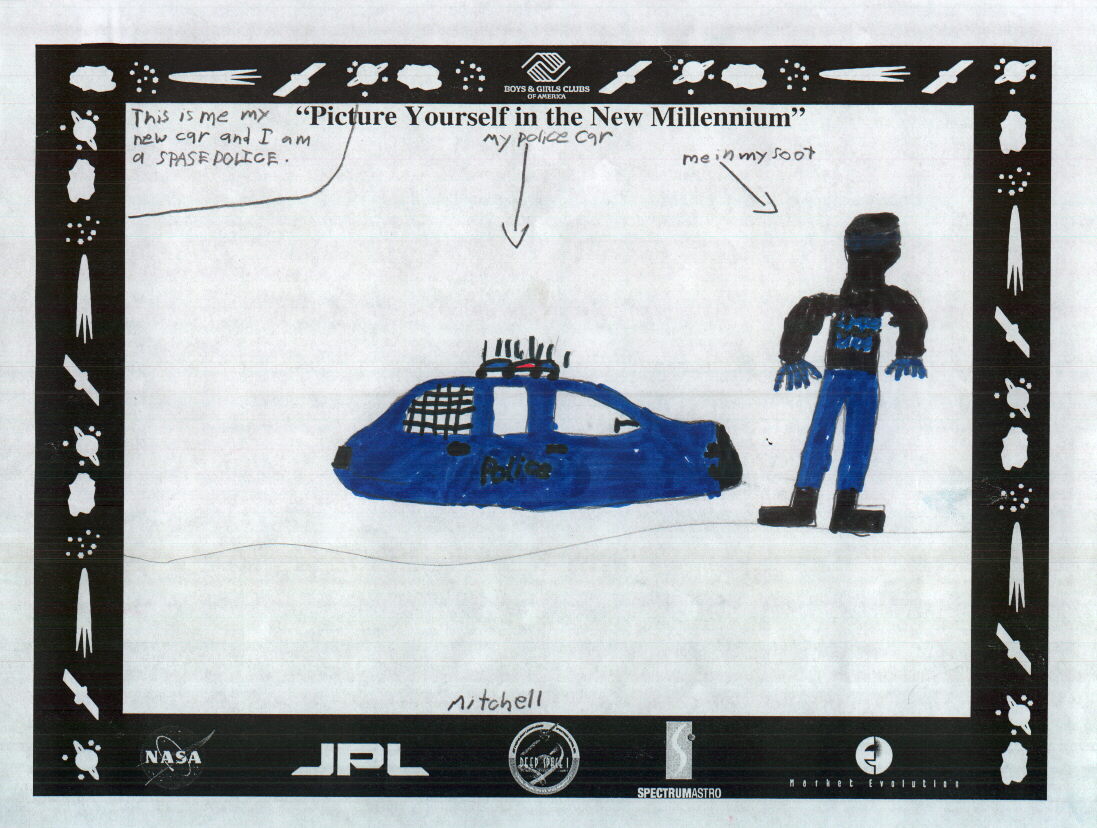 BOYS & GIRLS CLUBS
OF AMERICA
"Picture Yourself in the New Millennium"
This is me my
new car and I am
a SPASE POLICE.
my police car
me in my soot
Police
Mitchell
NASA
JPL
DEEP SPACE 1
SPECTRUMASTRO
Market Evolution